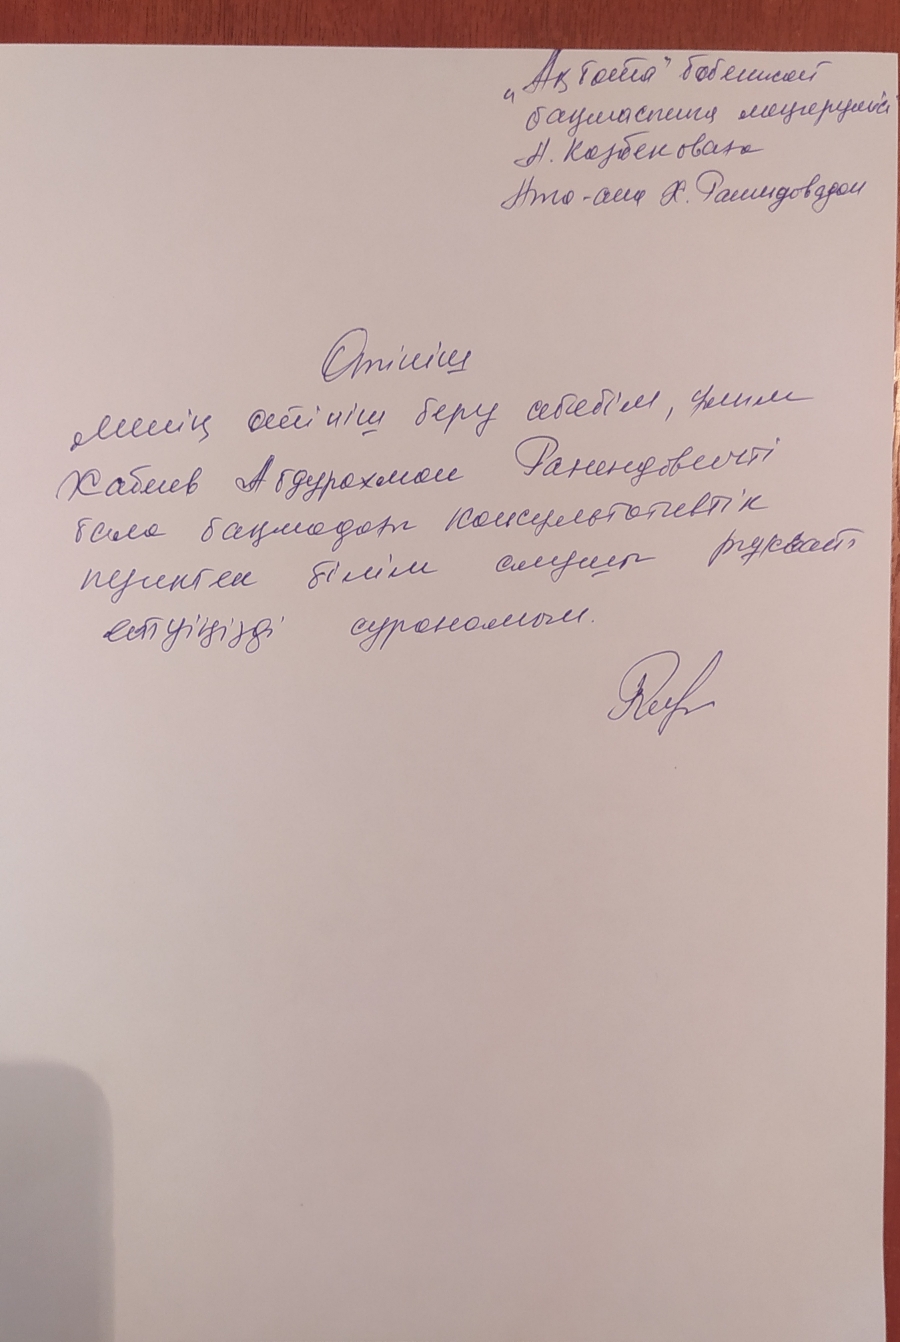 „Ақ бота" бөбекжай
бақшасының меңгерушісі
Н. Казбековаға
Ата-ана Х. Рашидовадан
Өтініш
Менің өтініш беру себебім, ұлым
Хабиев Абдурахман Рашидовичті
бала бақшадағы консультативтік
пунктен білім алуына рұқсат
етуіңізді сұранамын.